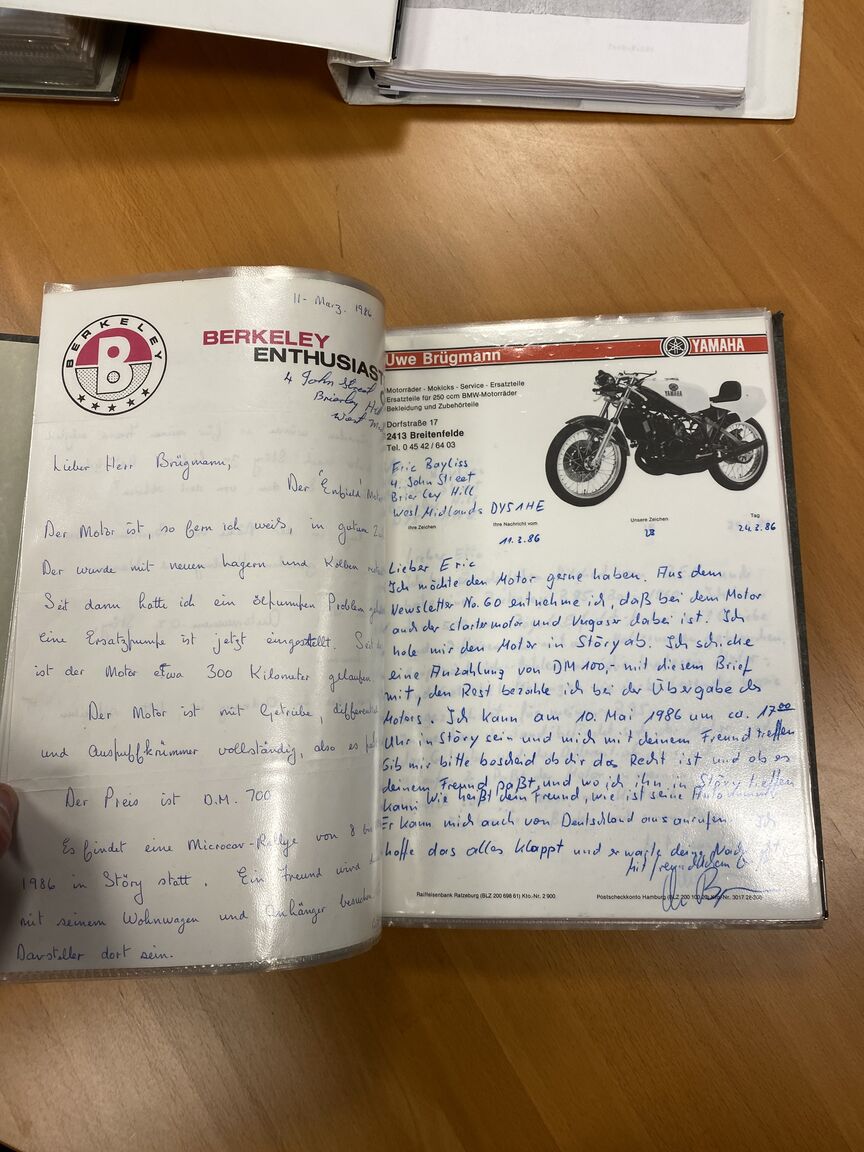 BERKELEY
B
11- März. 1986
BERKELEY
ENTHUSIAST
4 John Street
Brierley
West
Lieber Herr Brügmann,
Der 'Enfield'
Der Motor ist, so fern ich weiß, in gutem
Der wurde mit neuen lagern und Kolben
Seit dann hatte ich ein ölpumpen Problem
eine Ersatzpumpe ist jetzt eingestellt.
ist der Motor etwa 300 Kilometer gelaufen
Der Motor ist mit Getriebe,
und Auspuffkrümmer vollständig, also es
Der Preis ist D.M. 700
Es findet eine Microcar-Rallye von 8
1986 in Störy statt. Ein Freund wird
mit seinem Wohnwagen und Anhänger
Darsteller dort sein.
Uwe Brügmann
YAMAHA
Motorräder - Mokicks - Service - Ersatzteile
Ersatzteile für 250 ccm BMW-Motorräder
Bekleidung und Zubehörteile
Dorfstraße 17
2413 Breitenfelde
Tel. 0 45 42 / 64 03
YAMAHA
Eric Bayliss
4. John Street
Brierley Hill
West Midlands DY5 1HE
Ihre Zeichen Ihre Nachricht vom Unsere Zeichen Tag
11.3.86 24.3.86
Lieber Eric
Ich möchte den Motor gerne haben. Aus dem
Newsletter No. 60 entnehme ich, daß bei dem Motor
auch der startermotor und Vergaser dabei ist. Ich
hole mir den Motor in Störy ab. Ich schicke
eine Anzahlung von DM 100,- mit diesem Brief
mit, den Rest bezahle ich bei der Übergabe des
Motors. Ich kann am 10. Mai 1986 um ca. 17.00
Uhr in Störy sein und mich mit deinem Freund treffen
Gib mir bitte bescheid ob dir das Recht ist und ob es
deinem Freund paßt, und wo ich ihn in Störy treffen
kann Wie heißt dein Freund, wie ist seine Autonummer
Er kann mich auch von Deutschland aus anrufen Ich
hoffe das alles klappt und erwarte deine
Mit freundlichem
Raiffeisenbank Ratzeburg (BLZ 200 698 61) Kto.-Nr. 2 900
Postscheckkonto Hamburg (BLZ 200 100 20) Kto.-Nr. 3017 26-208